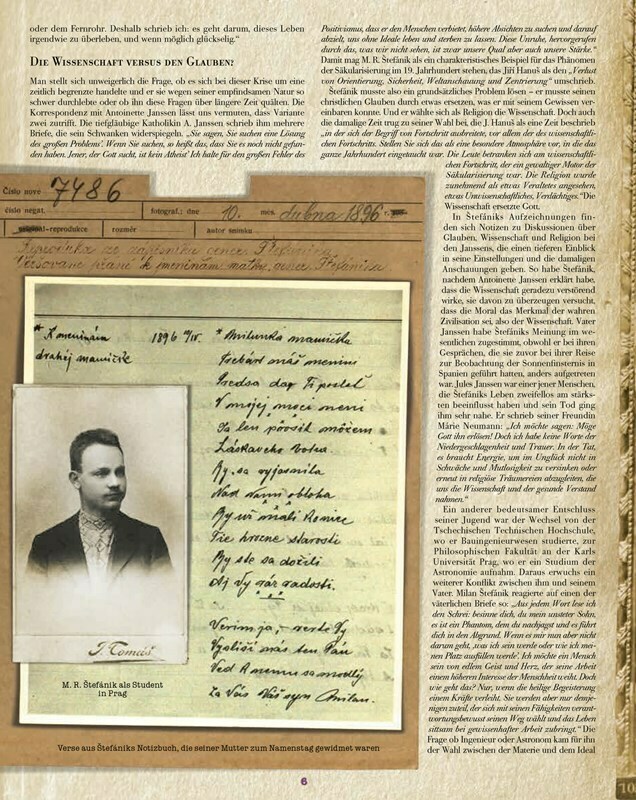 oder dem Fernrohr. Deshalb schrieb ich: es geht darum, dieses Leben
irgendwie zu überleben, und wenn möglich glückselig.“
DIE WISSENSCHAFT VERSUS DEN GLAUBEN?
Man stellt sich unweigerlich die Frage, ob es sich bei dieser Krise um eine
zeitlich begrenzte handelte und er sie wegen seiner empfindsamen Natur so
schwer durchlebte oder ob ihn diese Fragen über längere Zeit quälten. Die
Korrespondenz mit Antoinette Janssen lässt uns vermuten, dass Variante
zwei zutrifft. Die tiefgläubige Katholikin A. Janssen schrieb ihm mehrere
Briefe, die sein Schwanken widerspiegeln. „Sie sagen, Sie suchen eine Lösung
des ‚großen Problems‘. Wenn Sie suchen, so heißt das, dass Sie es noch nicht gefun-
den haben. Jener, der Gott sucht, ist kein Atheist! Ich halte für den großen Fehler des
Positivismus, dass er den Menschen verbietet, höhere Absichten zu suchen und darauf
abzielt, uns ohne Ideale leben und sterben zu lassen. Diese Unruhe, hervorgerufen
durch das, was wir nicht sehen, ist zwar unsere Qual aber auch unsere Stärke.“
Damit mag M. R. Štefánik als ein charakteristisches Beispiel für das Phänomen
der Säkularisierung im 19. Jahrhundert stehen, das Jiří Hanuš als den „Verlust
von Orientierung, Sicherheit, Weltanschauung und Zentrierung“ umschrieb.
Štefánik musste also ein grundsätzliches Problem lösen – er musste seinen
christlichen Glauben durch etwas ersetzen, was er mit seinem Gewissen ver-
einbaren konnte. Und er wählte sich als Religion die Wissenschaft. Doch auch
die damalige Zeit trug zu seiner Wahl bei, die J. Hanuš als eine Zeit beschrieb
„in der sich der Begriff von Fortschritt ausbreitete, vor allem der des wissenschaftli-
chen Fortschritts. Stellen Sie sich das als eine besondere Atmosphäre vor, in die das
ganze Jahrhundert eingetaucht war. Die Leute betranken sich am wissenschaftli-
chen Fortschritt, der ein gewaltiger Motor der
Säkularisierung war. Die Religion wurde
zunehmend als etwas Veraltetes angesehen,
etwas Unwissenschaftliches, Verdächtiges.“ Die
Wissenschaft ersetzte Gott.
In Štefániks Aufzeichnungen fin-
den sich Notizen zu Diskussionen über
Glauben, Wissenschaft und Religion bei
den Janssens, die einen tieferen Einblick
in seine Einstellungen und die damaligen
Anschauungen geben. So habe Štefánik,
nachdem Antoinette Janssen erklärt habe,
dass die Wissenschaft geradezu verstörend
wirke, sie davon zu überzeugen versucht,
dass die Moral das Merkmal der wahren
Zivilisation sei, also der Wissenschaft. Vater
Janssens habe Štefániks Meinung im we-
sentlichen zugestimmt, obwohl er bei ihren
Gesprächen, die sie zuvor bei ihrer Reise
zur Beobachtung der Sonnenfinsternis in
Spanien geführt hatten, anders aufgetreten
war. Jules Janssen war einer jener Menschen,
die Štefániks Leben zweifellos am stärks-
ten beeinflusst haben und sein Tod ging
ihm sehr nahe. Er schrieb seiner Freundin
Márie Neumann: „Ich möchte sagen: Möge
Gott ihn erlösen! Doch ich habe keine Worte der
Niedergeschlagenheit und Trauer. In der Tat,
es braucht Energie, um im Unglück nicht in
Schwäche und Mutlosigkeit zu versinken oder
erneut in religiöse Träumereien abzugleiten, die
uns die Wissenschaft und der gesunde Verstand
nahmen.“
Ein anderer bedeutsamer Entschluss
seiner Jugend war der Wechsel von der
Tschechischen Technischen Hochschule,
wo er Bauingenieurwesen studierte, zur
Philosophischen Fakultät an der Karls
Universität Prag, wo er ein Studium der
Astronomie aufnahm. Daraus erwuchs ein
weiterer Konflikt zwischen ihm und seinem
Vater. Milan Štefánik reagierte auf einen der
väterlichen Briefe so: „Aus jedem Wort lese ich
den Schrei: besinne dich, du mein unsteter Sohn,
es ist ein Phantom, dem du nachjagst und es führt
dich in den Abgrund. Wenn es mir nun aber nicht
darum geht, ‚was ich sein werde oder wie ich mei-
nen Platz ausfüllen werde‘. Ich möchte ein Mensch
sein von edlem Geist und Herz, der seine Arbeit
einem höheren Interesse der Menschheit weiht. Doch
wie geht das? Nur, wenn die heilige Begeisterung
einem Kräfte verleiht. Sie werden aber nur demje-
nigen zuteil, der sich mit seinen Fähigkeiten verant-
wortungsbewusst seinen Weg wählt und das Leben
sittsam bei gewissenhafter Arbeit zubringt.“ Die
Frage ob Ingenieur oder Astronom kam für ihn
der Wahl zwischen der Materie und dem Ideal
Číslo nové 7486
číslo negat. fotograf.: dne 10. měs. dubna 1896 r.
-reprodukce rozměr autor snímku
Reprodukce ze zápisníku gener. Štefánika
Veršované přání k meninám matky gener. Štefánika
* K meninám 1896 10/IV.
drahej mamičke
* Milunká mamička
Čo ti dar Ti poslať
V mojej moci není
Ja len prosiť môžem
Láskavého Boha
By sa vyjasnila
Nad Vami obloha
By už mali konice
Tie hrozné starosti
By ste sa dožili
Aj Vy radosti.
Verím ja, verte Vy
Vyslyší nás ten Pán
Veď k nemu sa modlí
Za Vás Váš syn Milan.
J. Tomáš
M. R. Štefánik als Student
in Prag
Verse aus Štefániks Notizbuch, die seiner Mutter zum Namenstag gewidmet waren
6
10